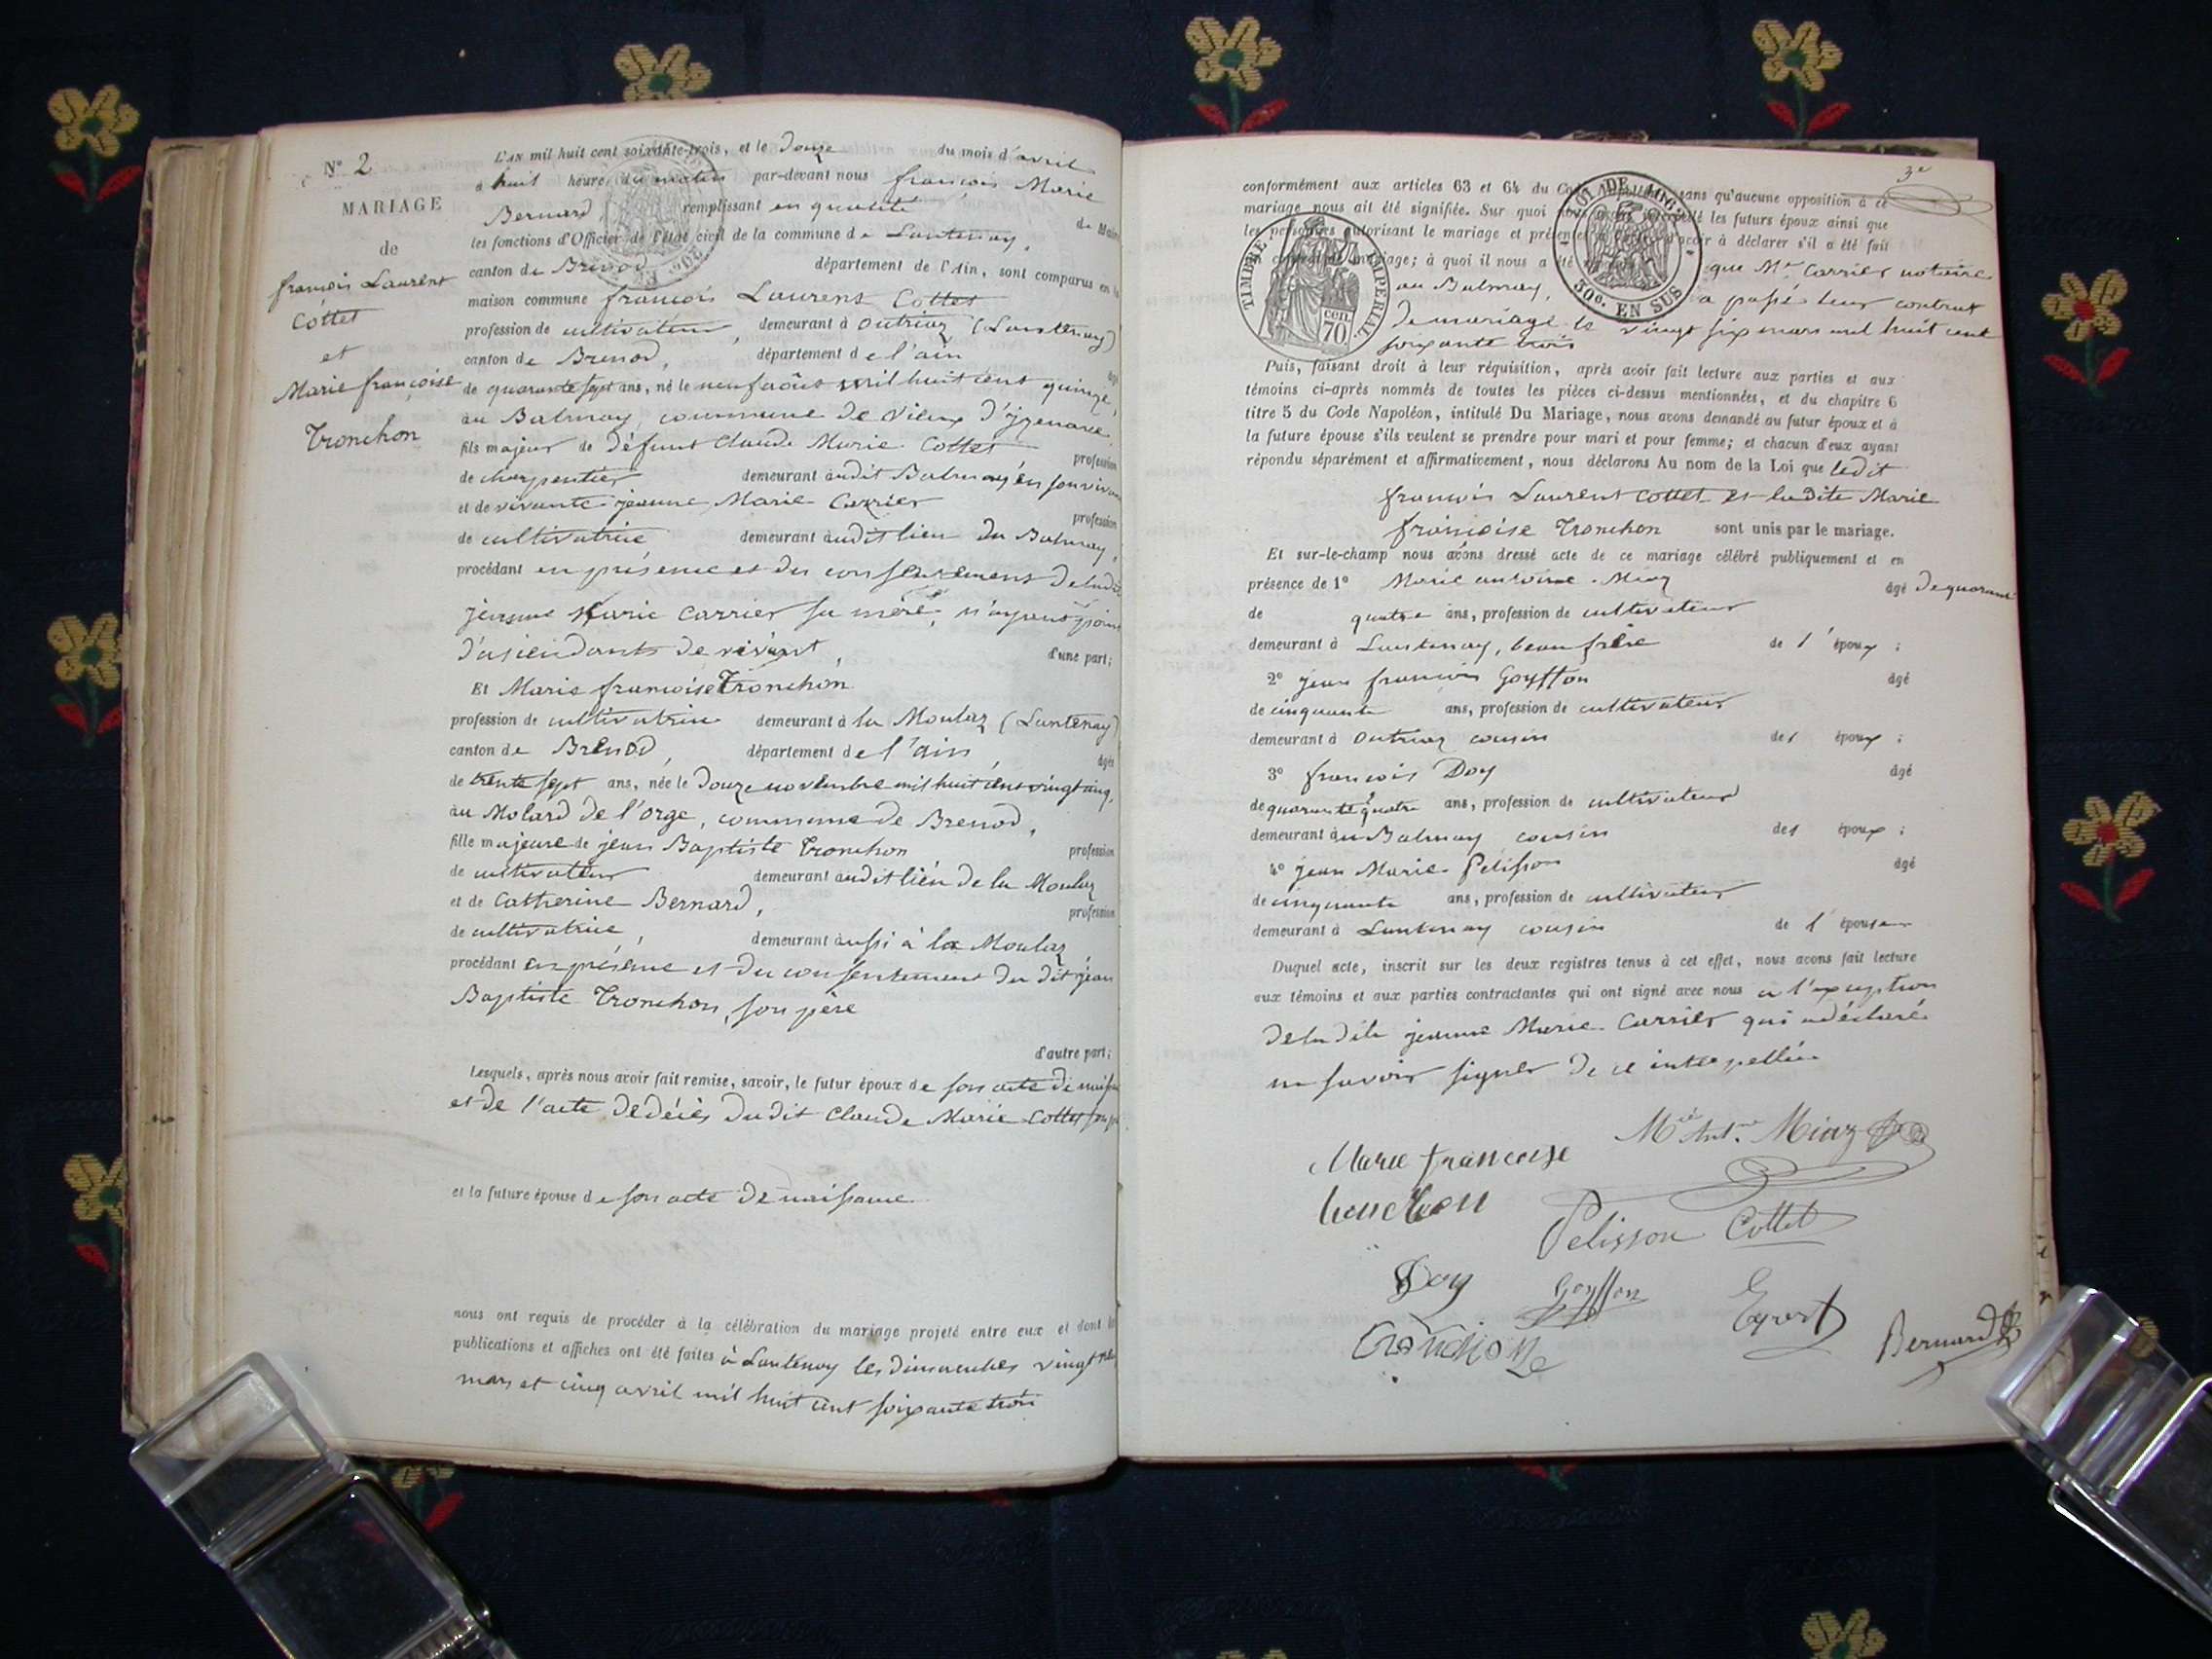 N° 2
MARIAGE
de
françois Laurent
Cottet
et
Marie françoise
Tronchon
L'AN mil huit cent soixante-trois, et le Douze du mois d'avril
à huit heures du matin par-devant nous françois Marie
Bernard, remplissant en qualité de Maire
les fonctions d'Officier de l'état civil de la commune de Lantenay,
canton de Brenod département de l'Ain, sont comparus en la
maison commune françois Laurent Cottet
profession de cultivateur, demeurant à Outriaz (Lantenay)
canton de Brenod, département de l'ain âgé
de quarante sept ans, né le neuf août mil huit cent quinze,
au Balmay, commune de Vieux d'izenave
fils majeur de défunt Claude Marie Cottet profession
de charpentier demeurant audit Balmay en son vivant
et de vivante jeanne Marie Carrier profession
de cultivatrice demeurant audit lieu du Balmay,
procédant en présence et du consentement de ladite
jeanne Marie Carrier sa mère, n'ayant point
d'asiendants de vivant, d'une part;
Et Marie francoise Tronchon
profession de cultivatrice demeurant à la Moulaz (Lantenay)
canton de Brenod, département de l'ain, âgée
de trente sept ans, née le Douze novembre mil huit cent vingt cinq,
au Molard de l'orge, commune de Brenod,
fille majeure de jean Baptiste Tronchon profession
de cultivateur demeurant audit lieu de la Moulaz
et de Catherine Bernard, profession
de cultivatrice, demeurant aussi à la Moulaz,
procédant en présence et du consentement du dit jean
Baptiste Tronchon, son père
d'autre part;
Lesquels, après nous avoir fait remise, savoir, le futur époux de son acte de
et de l'acte de décès dudit Claude Marie Cottet son
et la future épouse de son acte de naissance
nous ont requis de procéder à la célébration du mariage projeté entre eux et dont les
publications et affiches ont été faites à Lantenay les dimanches vingt
mars et cinq avril mil huit cent soixante trois
3e
conformément aux articles 63 et 64 du Code Napoléon, sans qu'aucune opposition à ce
mariage nous ait été signifiée. Sur quoi nous avons interpellé les futurs époux ainsi que
les personnes autorisant le mariage et présentes d'avoir à déclarer s'il a été fait
un contrat de mariage; à quoi il nous a été que Me Carrier notaire
au Balmay, a passé leur contrat
de mariage le vingt six mars mil huit cent
soixante trois
TIMBRE IMPÉRIAL
70 cen.
50c. EN SUS
Puis, faisant droit à leur réquisition, après avoir fait lecture aux parties et aux
témoins ci-après nommés de toutes les pièces ci-dessus mentionnées, et du chapitre 6
titre 5 du Code Napoléon, intitulé Du Mariage, nous avons demandé au futur époux et à
la future épouse s'ils veulent se prendre pour mari et pour femme; et chacun d'eux ayant
répondu séparément et affirmativement, nous déclarons Au nom de la Loi que ledit
françois Laurent Cottet et ladite Marie
françoise Tronchon sont unis par le mariage.
Et sur-le-champ nous avons dressé acte de ce mariage célébré publiquement et en
présence de 1° Marie antoine Miaz âgé de quarante
de quatre ans, profession de cultivateur
demeurant à Lantenay, beau frère de l'époux;
2° jean françois Goyffon âgé
de cinquante ans, profession de cultivateur
demeurant à Outriaz cousin de l'époux;
3° françois Doy âgé
de quarante quatre ans, profession de cultivateur
demeurant au Balmay cousin de l'époux;
4° jean Marie Pelisson âgé
de cinquante ans, profession de cultivateur
demeurant à Lantenay cousin de l'épouse
Duquel acte, inscrit sur les deux registres tenus à cet effet, nous avons fait lecture
aux témoins et aux parties contractantes qui ont signé avec nous à l'exception
de ladite jeanne Marie Carrier qui a déclaré
ne savoir signer de ce interpellée
Marie francoise Mie Ant. Miaz
tronchon
Pelisson Cottet
Doy Goyffon
Tronchon Bernard